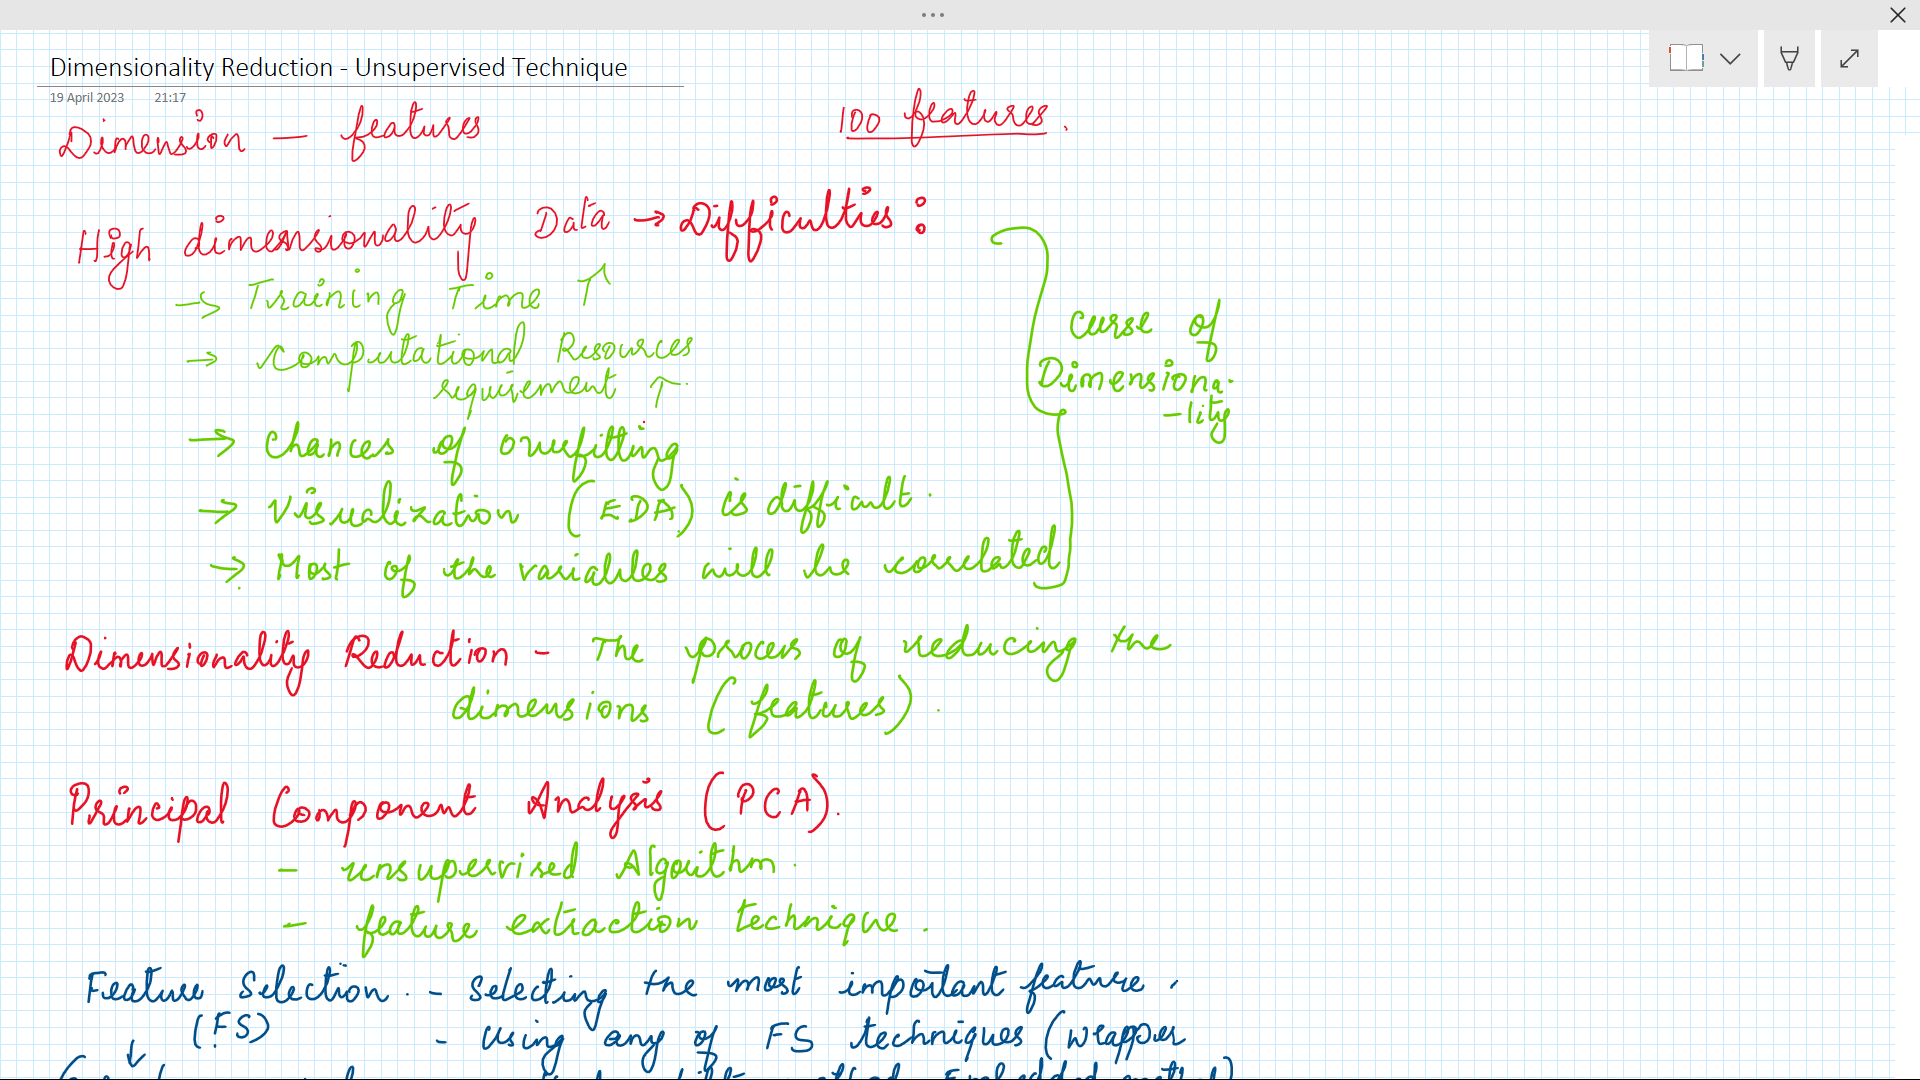 Dimensionality Reduction - Unsupervised Technique
19 April 2023 21:17
Dimension — features
100 features.
High dimensionality Data → Difficulties :
→ Training Time ↑
→ Computational Resources
requirement ↑
→ Chances of overfitting
→ Visualization (EDA) is difficult.
→ Most of the variables will be correlated
Curse of
Dimensiona-
-lity
Dimensionality Reduction - The process of reducing the
dimensions (features).
Principal Component Analysis (PCA).
- unsupervised Algorithm.
- feature extraction technique.
Feature Selection. - Selecting the most important feature.
(FS)
- Using any of FS techniques (wrapper
↓
method, Embedded method)